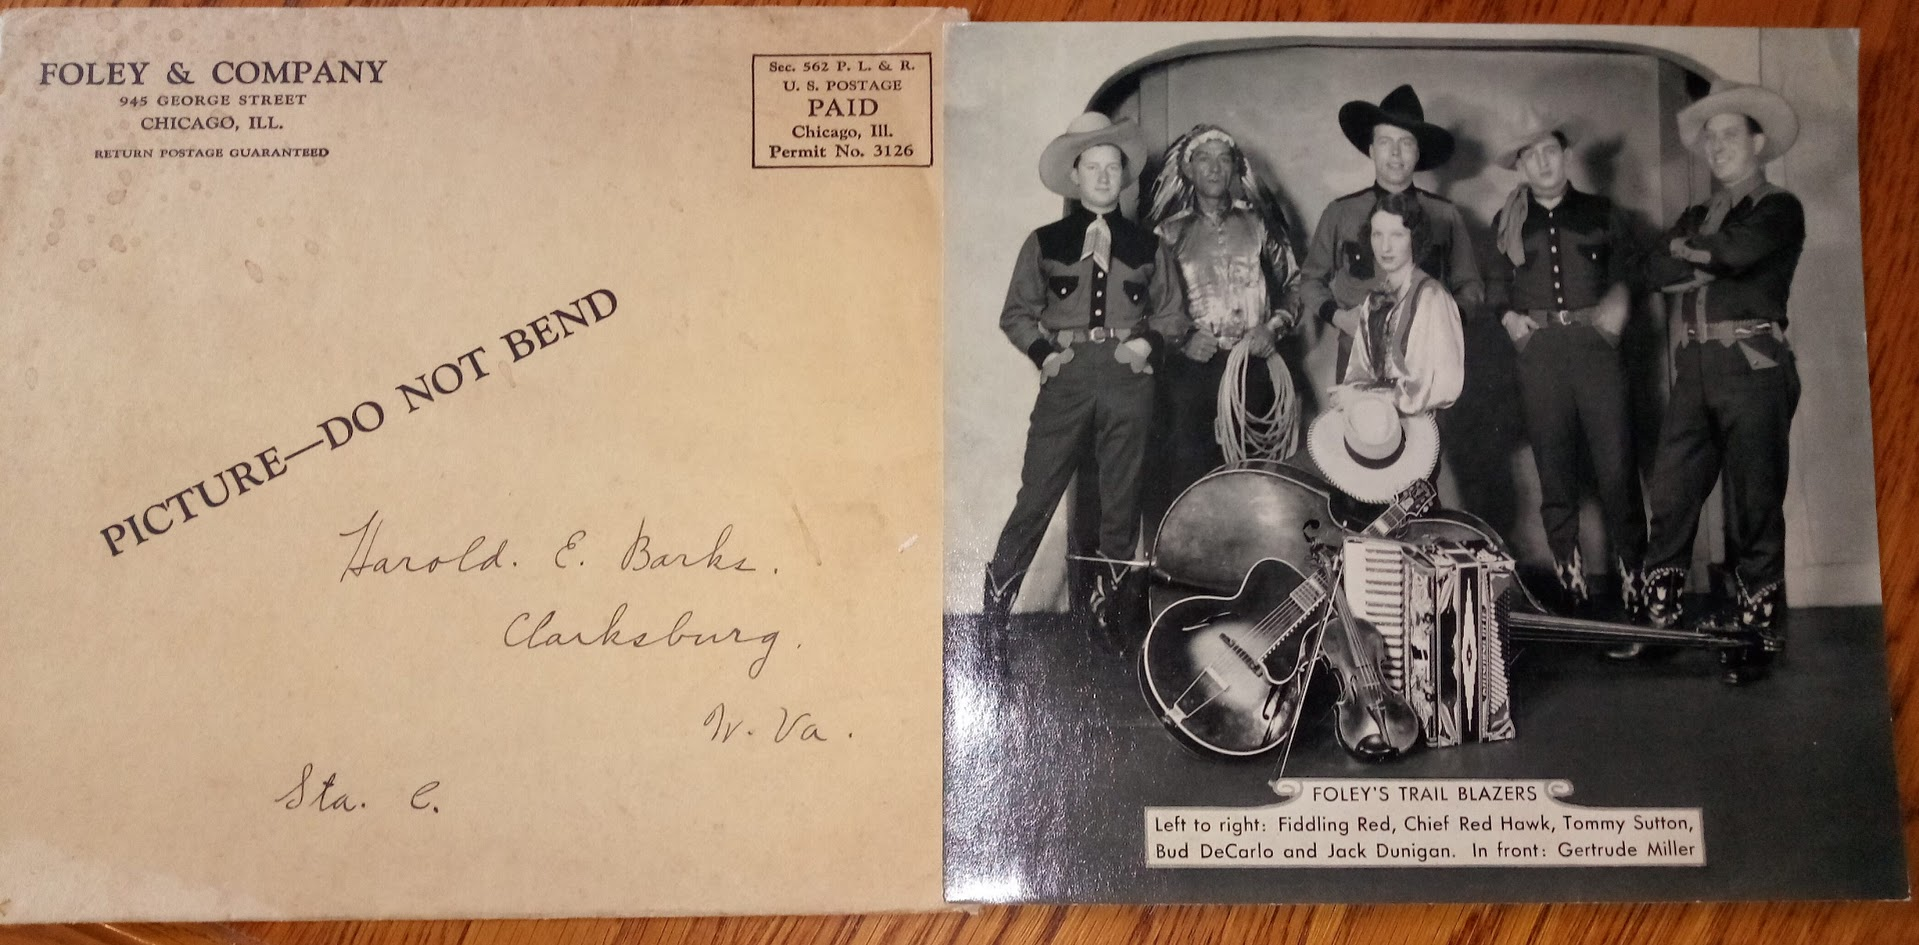 FOLEY & COMPANY
945 GEORGE STREET
CHICAGO, ILL.
RETURN POSTAGE GUARANTEED
Sec. 562 P. L. & R.
U. S. POSTAGE
PAID
Chicago, Ill.
Permit No. 3126
PICTURE—DO NOT BEND
Harold. E. Barks.
Clarksburg.
W. Va.
Sta. C.
FOLEY'S TRAIL BLAZERS
Left to right: Fiddling Red, Chief Red Hawk, Tommy Sutton,
Bud DeCarlo and Jack Dunigan. In front: Gertrude Miller